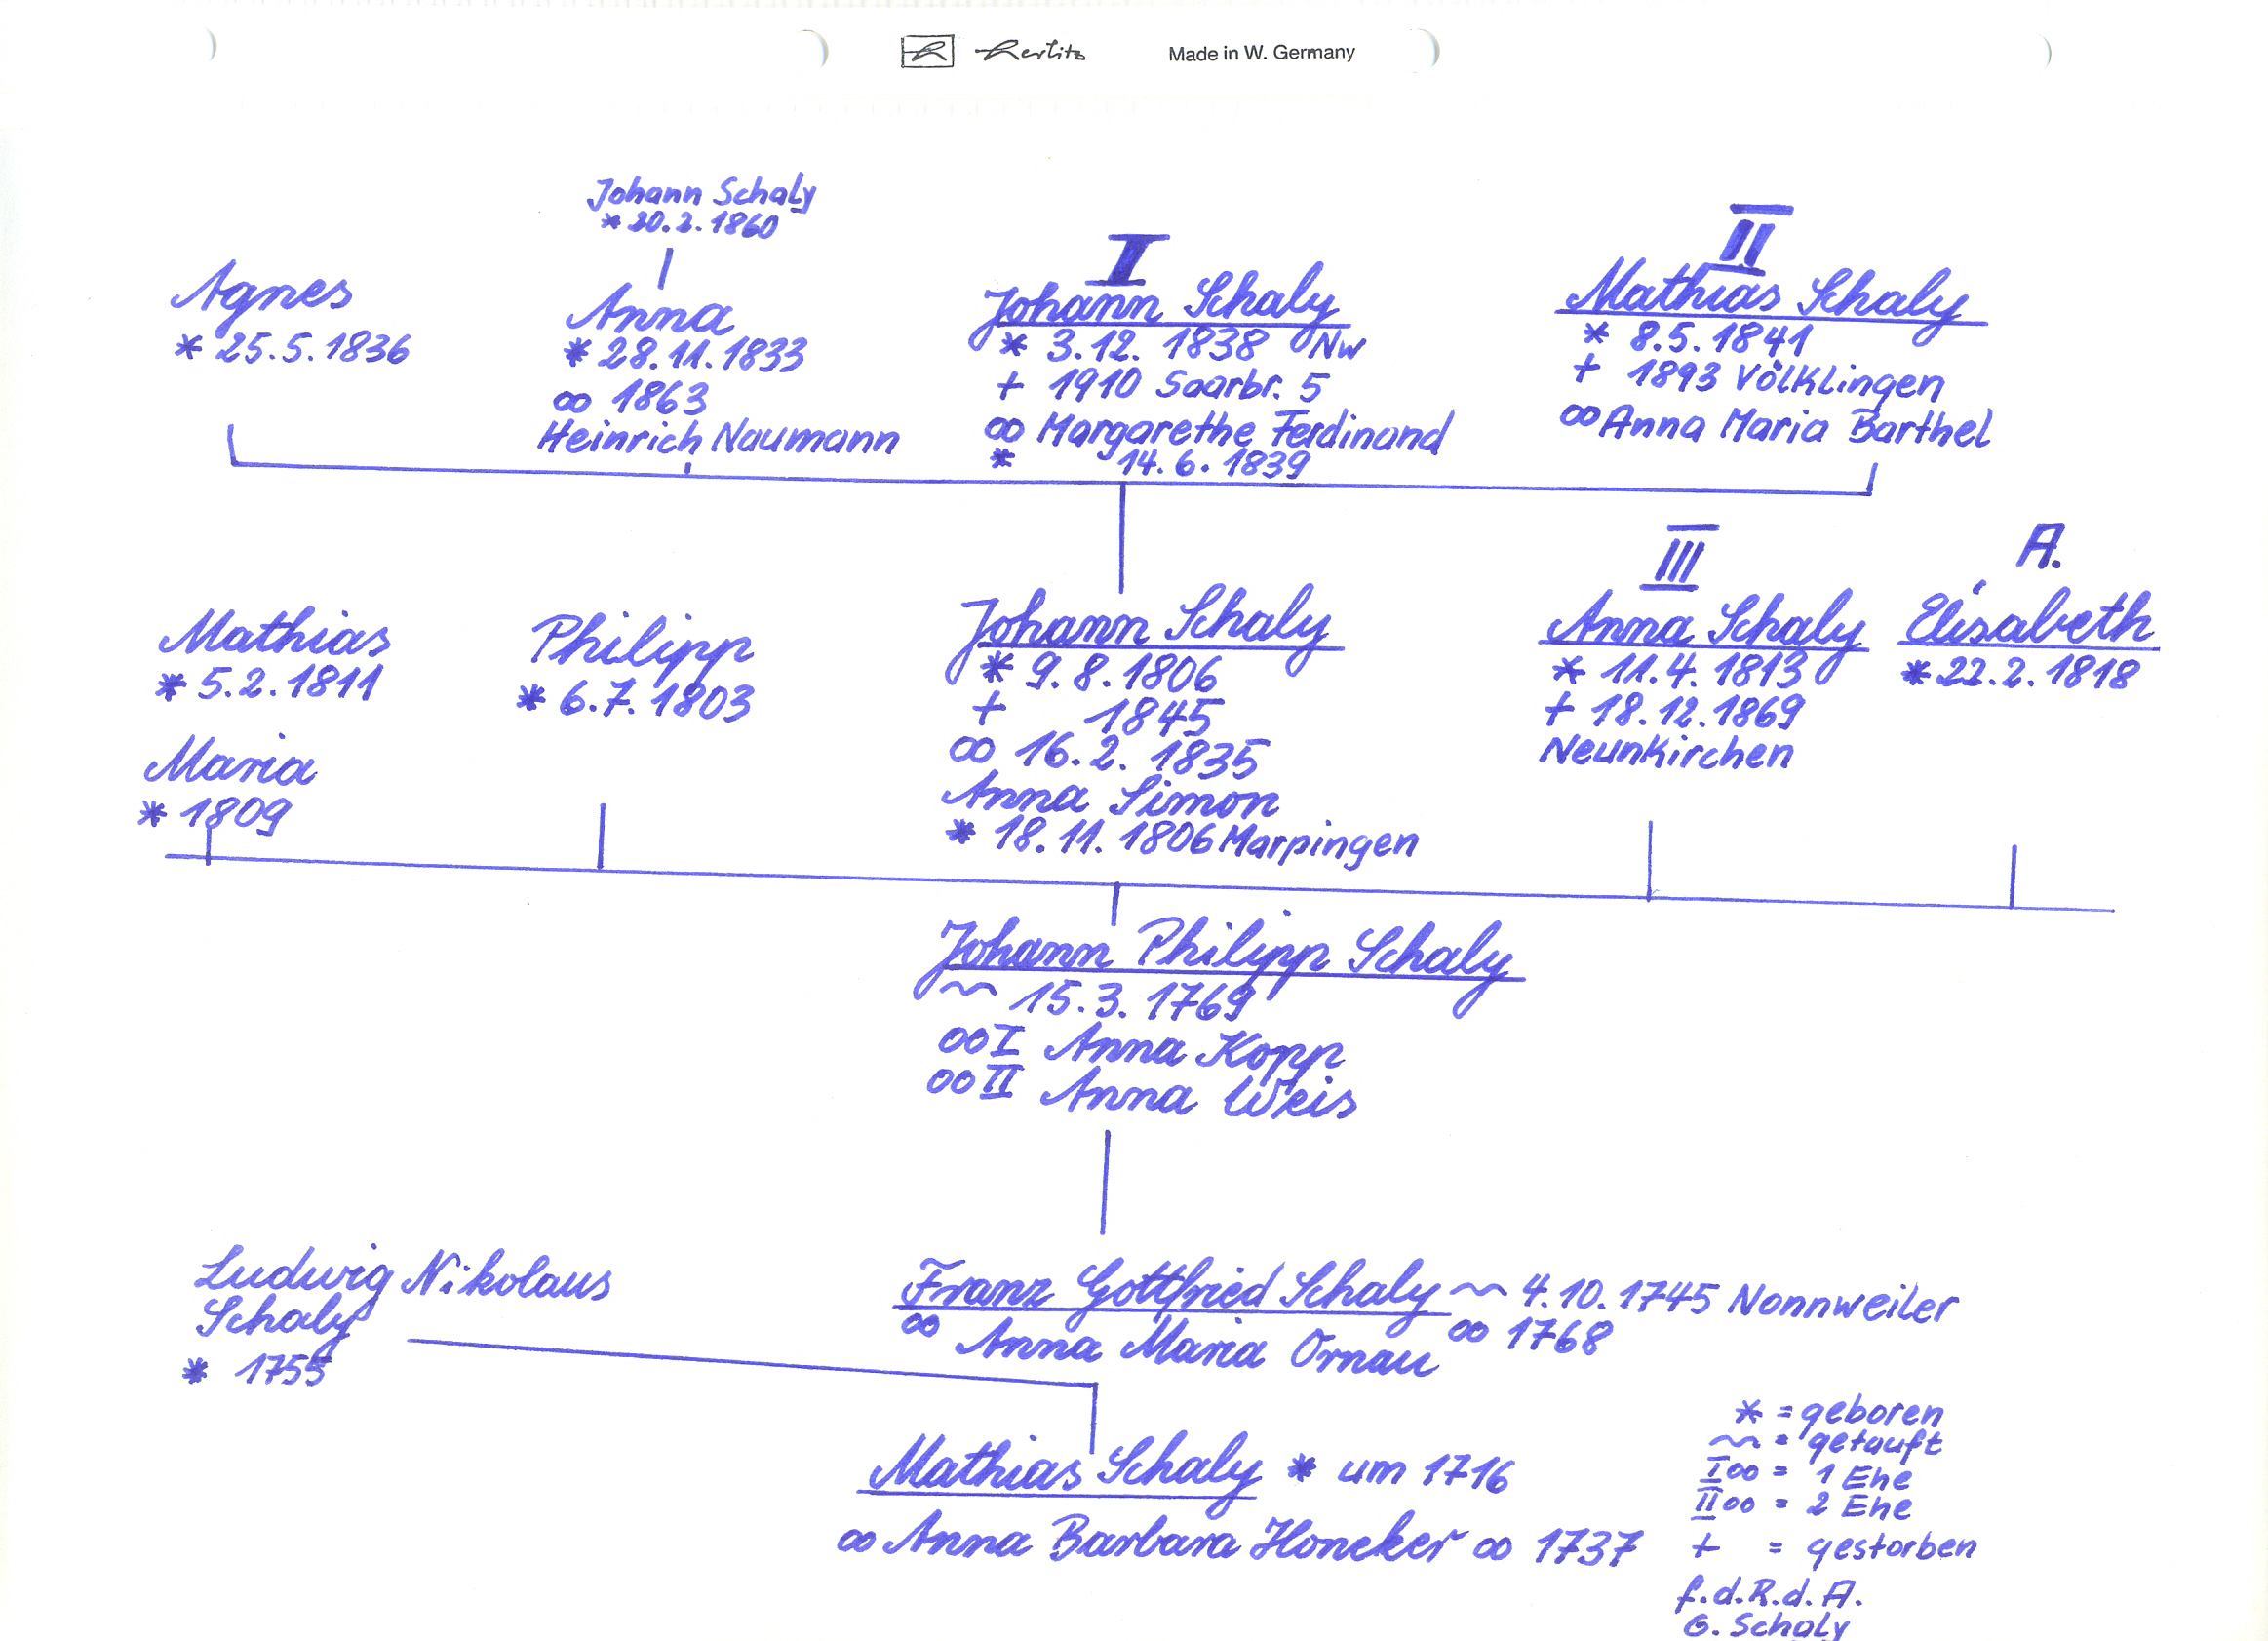 R Herlitz Made in W. Germany
Johann Schaly
* 20.2.1860
I
II
Agnes
* 25.5.1836
Anna
* 28.11.1833
∞ 1863
Heinrich Naumann
Johann Schaly
* 3.12. 1838 Nw
+ 1910 Saarbr. 5
∞ Margarethe Ferdinand
* 14.6.1839
Mathias Schaly
* 8.5.1841
+ 1893 Völklingen
∞ Anna Maria Barthel
III
A.
Mathias
* 5.2.1811
Maria
* 1809
Philipp
* 6.7.1803
Johann Schaly
* 9.8.1806
+ 1845
∞ 16.2. 1835
Anna Simon
* 18.11.1806 Marpingen
Anna Schaly
* 11.4.1813
+ 18.12.1869
Neunkirchen
Elisabeth
* 22.2.1818
Johann Philipp Schaly
~ 15.3.1769
∞ I Anna Kopp
∞ II Anna Weis
Ludwig Nikolaus
Schaly
* 1755
Franz Gottfried Schaly ~ 4.10.1745 Nonnweiler
∞ Anna Maria Ornau ∞ 1768
Mathias Schaly * um 1716
∞ Anna Barbara Honeker ∞ 1737
* = geboren
~ = getauft
I∞ = 1 Ehe
II∞ = 2 Ehe
+ = gestorben
f.d.R.d.A.
G. Schaly